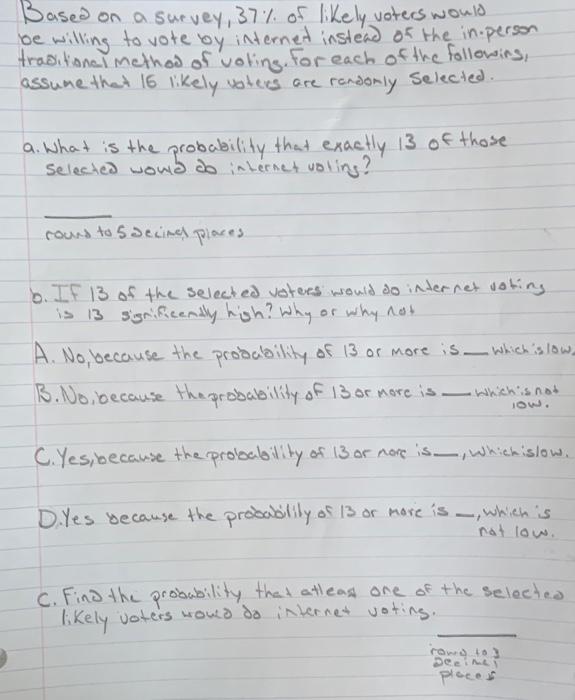 Based on a survey, 37% of likely voters would
be willing to vote by internet instead of the in-person
traditional method of voting. For each of the following,
assume that 16 likely voters are randomly selected.
a. What is the probability that exactly 13 of those
selected would do internet voting?
round to 5 decimal places
b. If 13 of the selected voters would do internet voting
is 13 significantly high? Why or why not
A. No, because the probability of 13 or more is __ which is low.
B. No, because the probability of 13 or more is __ which is not
low.
C. Yes, because the probability of 13 or more is __, which is low.
D. Yes because the probability of 13 or more is __, which is
not low.
C. Find the probability that atleast one of the selected
likely voters would do internet voting.
round to 3
decimal
places